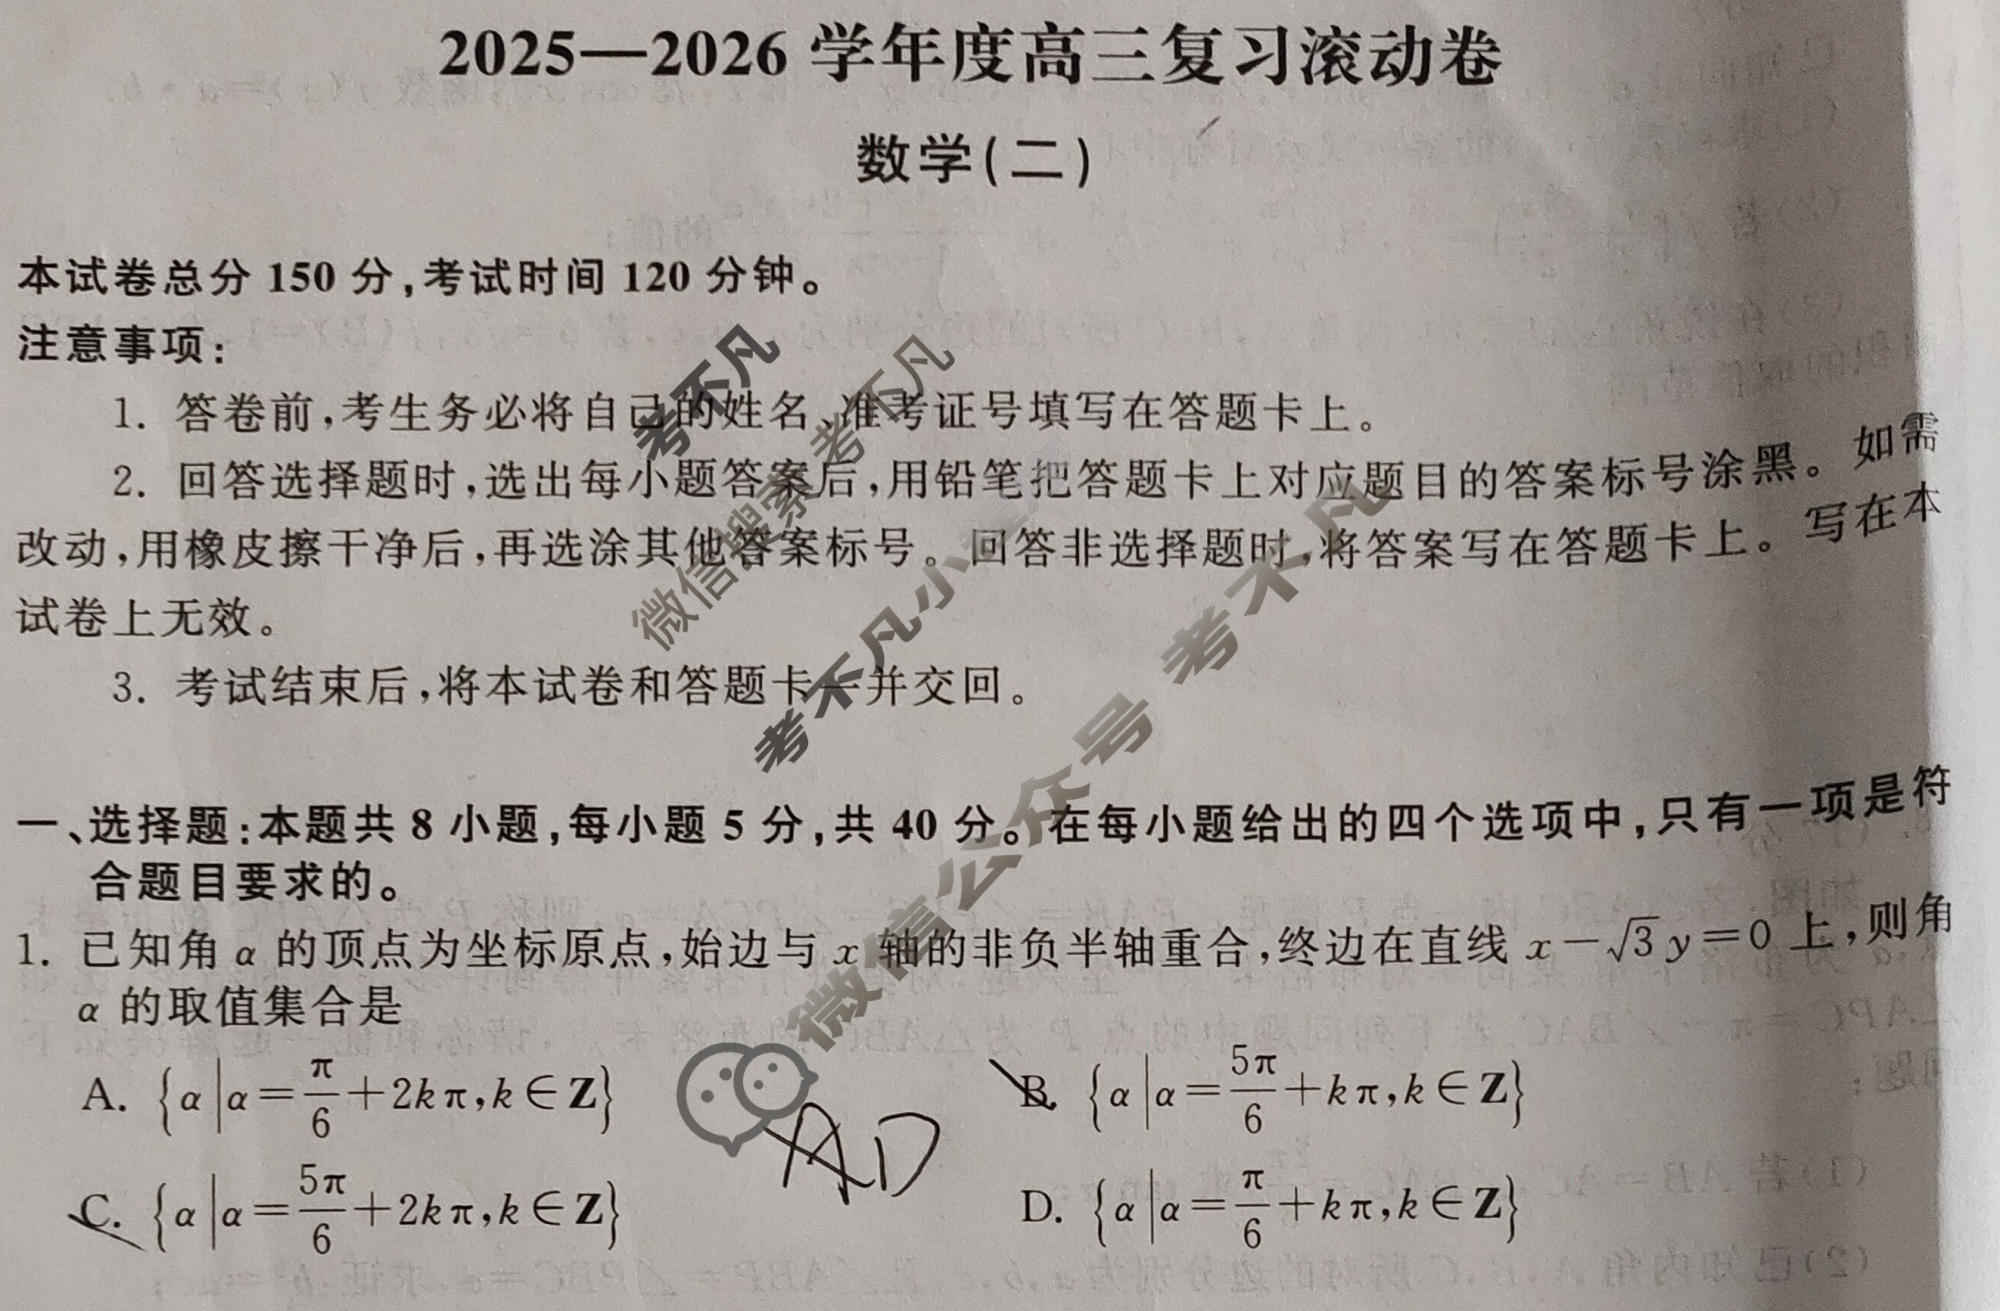 2025—2026 学年度高三复习滚动卷
数学(二)
本试卷总分 150 分,考试时间 120 分钟。
注意事项:
1. 答卷前,考生务必将自己的姓名、准考证号填写在答题卡上。
2. 回答选择题时,选出每小题答案后,用铅笔把答题卡上对应题目的答案标号涂黑。如需
改动,用橡皮擦干净后,再选涂其他答案标号。回答非选择题时,将答案写在答题卡上。写在本
试卷上无效。
3. 考试结束后,将本试卷和答题卡一并交回。
一、选择题:本题共 8 小题,每小题 5 分,共 40 分。在每小题给出的四个选项中,只有一项是符
合题目要求的。
1. 已知角 α 的顶点为坐标原点,始边与 x 轴的非负半轴重合,终边在直线 x-√3y=0 上,则角
α 的取值集合是
A. {α|α=π/6+2kπ,k∈Z}
B. {α|α=5π/6+kπ,k∈Z}
AD
C. {α|α=5π/6+2kπ,k∈Z}
D. {α|α=π/6+kπ,k∈Z}
考不凡
微信搜索 考不凡
考不凡小
微信公众号 考不凡